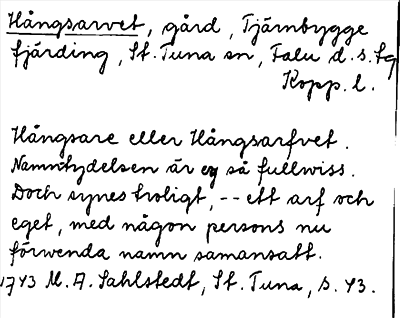 Hångsarvet, gård, Tjärnbygge
fjärding, St. Tuna sn, Falu d. s. fg
Kopp. l.
Hångsare eller Hångsarfvet.
Namntydelsen är ey så fullwiss.
Doch synes troligt, -- ett arf och
eget, med någon persons nu
förwenda namn samansatt.
1743 M. A. Sahlstedt, St. Tuna, s. 43.